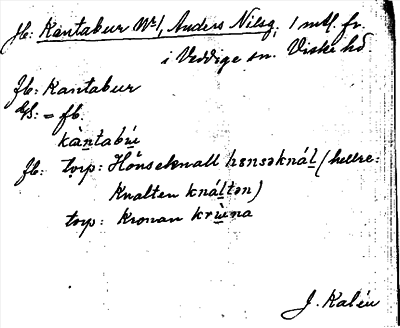 fb: Kantabur Nr 1, Anders Nilsg, 1 mtl. fr.
i Veddige sn. Viske hd
fb: Kantabur
= fb.
kàntabu̇
fb: torp: Hönseknall hɛnsəknál (hellre:
Knalten knáltən)
torp: Kronan krùna
J. Kalén